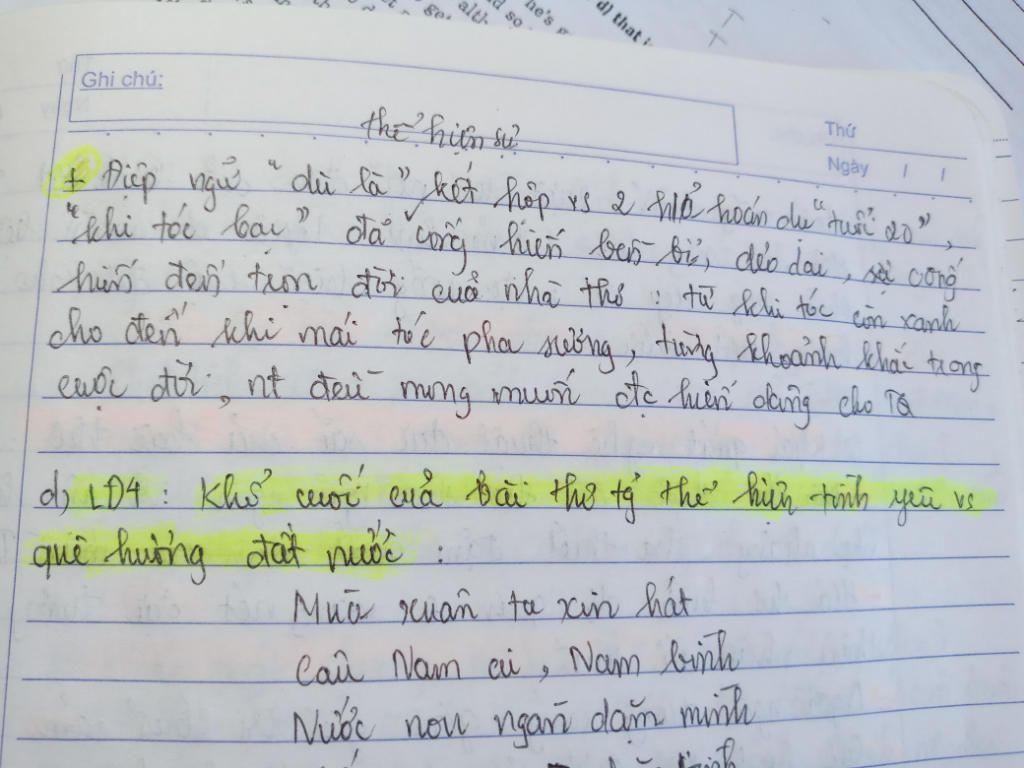 d) that i
he's
nd so
alth
Ghi chú:
Thứ
Ngày / /
thể hiện sự
+ Điệp ngữ "dù là", kết hợp vs 2 h/ả hoán dụ "tuổi 20",
"khi tóc bạc" đã cống hiến bền bỉ, dẻo dai, sự cống
hiến đến trọn đời của nhà thơ: từ khi tóc còn xanh
cho đến khi mái tóc pha sương, từng khoảnh khắc trong
cuộc đời, nt đều mong muốn đc hiến dâng cho TQ
d) LĐ4: Khổ cuối của bài thơ tg thể hiện tình yêu vs
quê hương đất nước:
Mùa xuân ta xin hát
Câu Nam ai, Nam bình
Nước non ngàn dặm mình